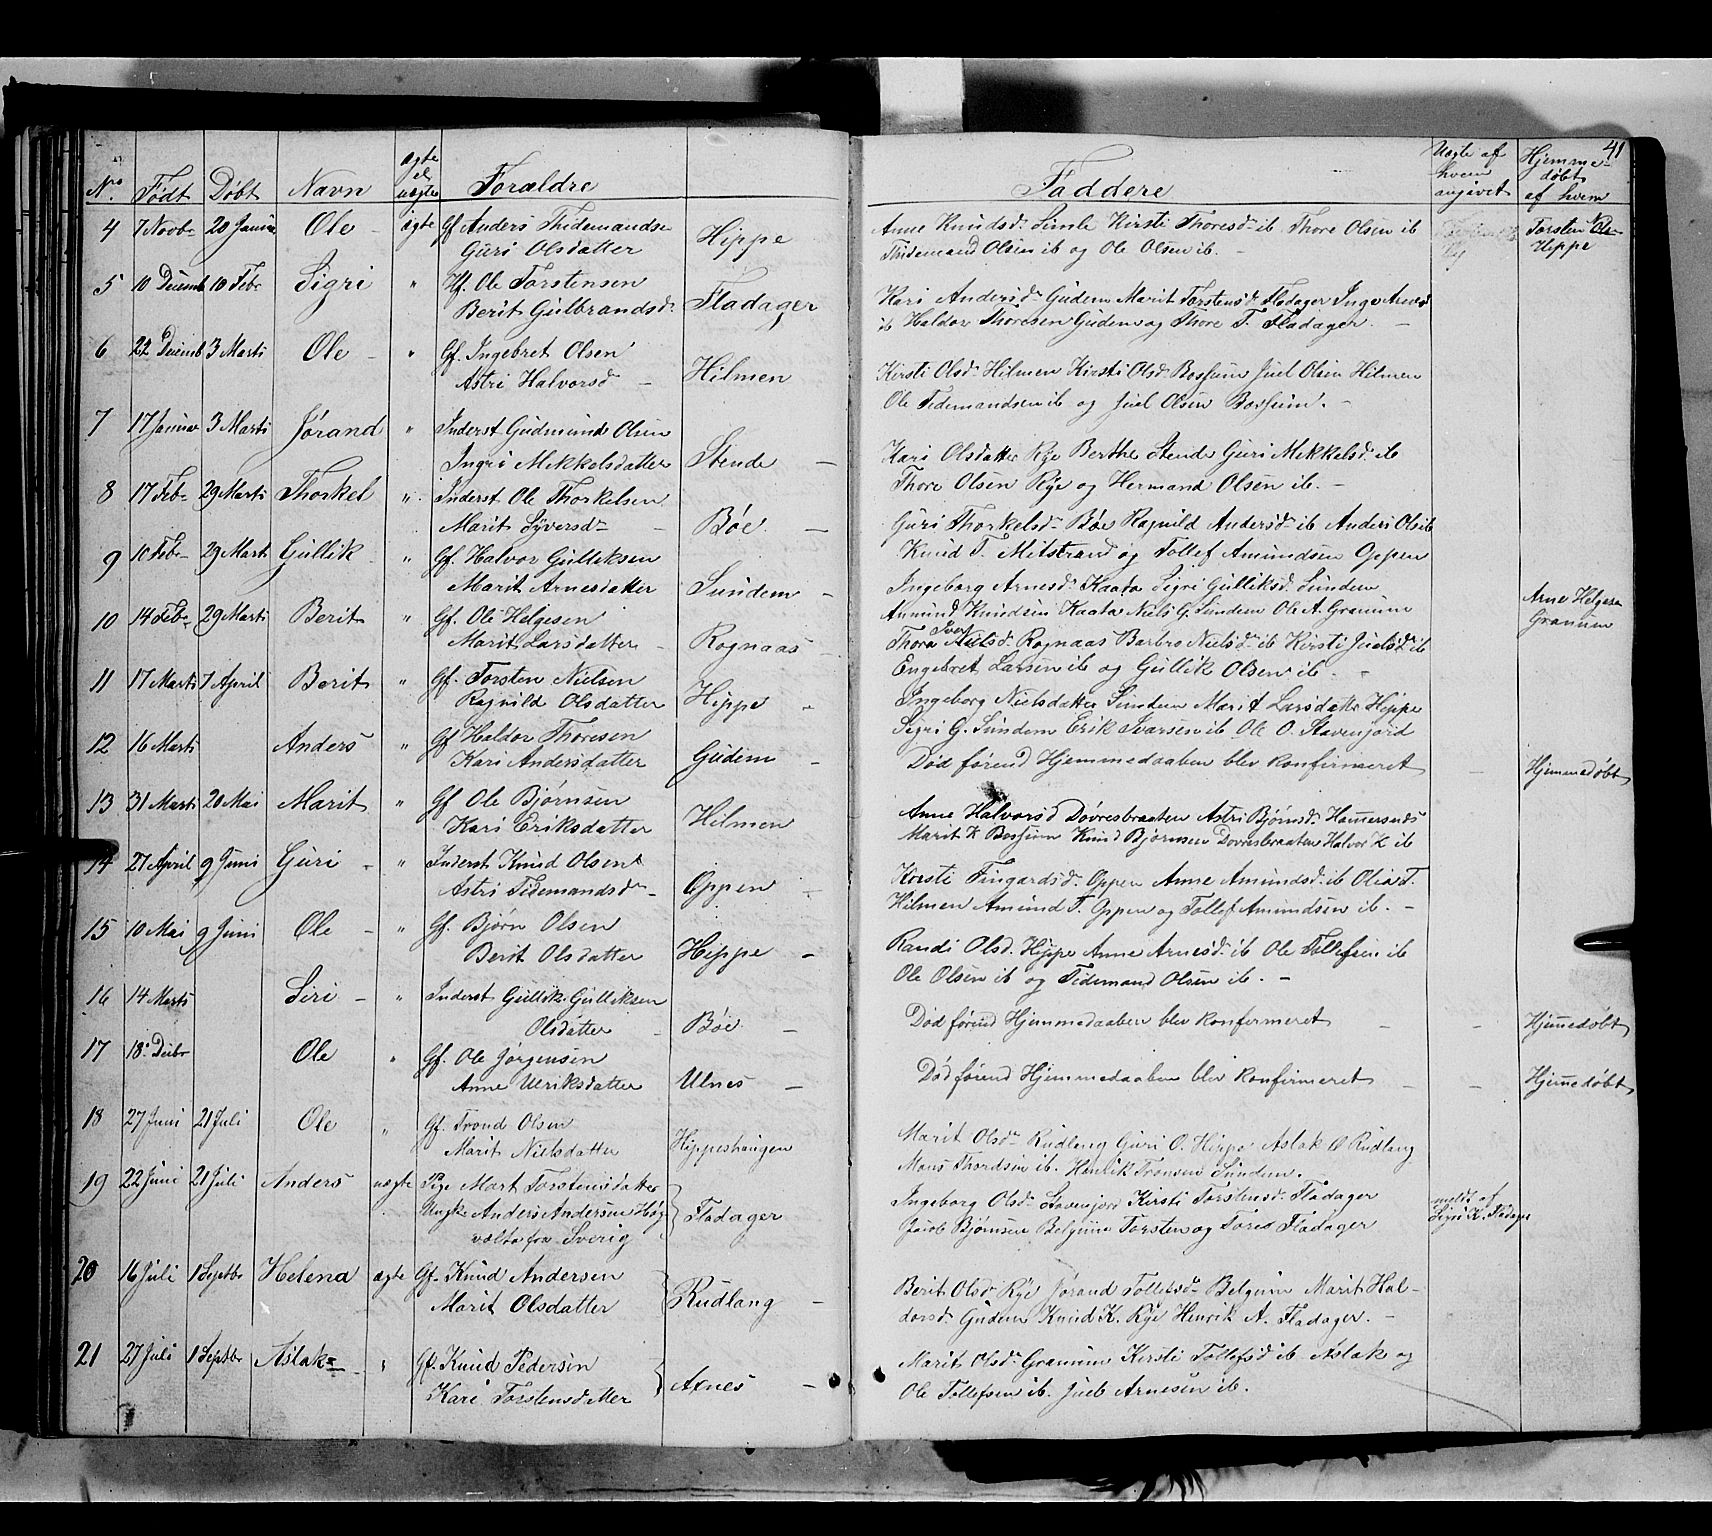 41
No. Født Døbt Navn ægte el uægte Forældre
Faddere Uægte af hvem angivet Hjemme- døbt af hvem
4 7 Novbr 20 Januar Ole - ægte Gf Anders Thidemandse Hippe
Guri Olsdatter
Anne Knudsd. Simle Kirsti Thoresd. ib Thore Olsen ib
Thidemand Olsen ib og Ole Olsen ib. -
Torsten Hippe
5 10 Decemb 10 Febr Sigri " Hf. Ole Torstensen Fladager
Berit Gulbrandsd.
Kari Andersd. Gudem Marit Torstensd. Fladager Inge
ib Haldor Thoresen Gudem og Thore T. Fladager. -
6 22 Decemb 3 Marts Ole - " Gf. Ingebret Olsen Hilmen
Astri Halvorsd -
Kirsti Olsd. Hilmen Kirsti Olsd. Bossum Juel Olsen Hilmen
Ole Tidemandsen ib og Juel Olsen Bossum. -
7 17 Januar 3 Marts Jørand " Inderst Gudmund Olsen Stende -
Ingri Mekkelsdatter
Kari Olsdatter Rye Berthe Stende Guri Mekkelsd. ib
Thore Olsen Rye og Hermand Olsen ib. -
8 17 Feb. 29 Marts Thorkel " Inderst Ole Thorkelsen Bøe -
Marit Syversdr
Guri Thorkelsd. Bøe Ragnild Andersd. ib Anders Ols ib
Knud T. Mitstrand og Tollef Amundsen Oppen
9 10 Feb. 29 Marts Gullik " Gf. Halvor Gulliksen Sundem -
Marit Arnesdatter
Ingeborg Arnesd. Kaata Sigri Gulliksd. Sundem
Amund Knudsen Kaata Niels G. Sundem Ole A. Granum
10 14 Feb. 29 Marts Berit " Gf. Ole Helgesen Rognaas -
Marit Larsdatter
Thora Nielsd. Rognaas Barbro Nielsd. ib Kirsti Juelsd. ib
Engebret Larsen ib og Gullik Olsen ib.
Arne Helgesen Granum
11 17 Marts 7 April Berit " Gf. Torsten Nielsen Hippe -
Ragnild Olsdatter
Ingeborg Nielsdatter Sundem Marit Larsdatter Hippe
Sigri G. Sundem Erik Ivarsen ib Ole O. Stavenjord
12 16 Marts Anders " Gf Haldor Thoresen Gudem -
Kari Andersdatter
Død førend Hjemmedaaben blev konfirmeret - Hjemmedøbt
13 31 Marts 20 Mai Marit " Gf Ole Bjørnsen Hilmen
Kari Eriksdatter
Anne Halvorsd Dovresbraaten Astri Bjørnsd. Hamersnds
Marit K Bossum Knud Bjørnsen Dovresbraaten Halvor K ib
14 27 April 9 Juni Guri - " Inderst Knud Olsen Oppen -
Astri Tidemandsdr
Kirsti Fingardsd. Oppen Anne Amundsd. ib T.
Hilmen Amund T. Oppen og Tollef Amundsen ib. -
15 10 Mai 9 Juni Ole - " Gf. Bjørn Olsen Hippe -
Berit Olsdatter
Randi Olsd. Hippe Anne Arnesd. ib Ole Tollefsen ib
Ole Olsen ib og Tidemand Olsen ib. -
16 14 Marts Siri - " Inderst Gullik Gulliksen Bøe -
Olsdatter
Død førend Hjemmedaaben blev konfirmeret - - Hjemedøbt
17 18 Decbr Ole " Gf. Ole Jørgensen Ulnes -
Anne Ulriksdatter
Død førend Hjemmedaaben blev konfirmeret - - Hjemedøbt
18 27 Juni 21 Juli Ole " Gf. Trond Olsen Hippeshaugen
Marit Nielsdatter
Marit Olsdr Rudlang Guri O. Hippe Aslak O Rudlang
Mons Thordsen ib. Henrik Tronsen Sundem.
19 22 Juni 21 Juli Anders uægte Pige Mart Torstensdatter Fladager
Ungke Anders Andersen Høg
valta fra Sverig
Ingeborg Olsd. Stavenjord Kirsti Torstensd. Fladager
Jacob Bjørnsen Belgum Torsten og Tored Fladager
meldt af Sigri K. Fladager
20 16 Juli 1 Septbr Helena ægte Gf. Knud Andersen Rudlang -
Marit Olsdatter
Berit Olsd. Rye Jørand Tollefsdr Belgum Marit Hal-
dorsd. Gudem Knud K. Rye Henrik A. Fladager. -
21 27 Juli 1 Septbr Aslak " Gf. Knud Pedersen Axnes -
Kari Torstensdatter
Marit Olsdr Granum Kirsti Tollefsd ib Aslak og
Ole Tollefsen ib. Jueb Arnesen ib.